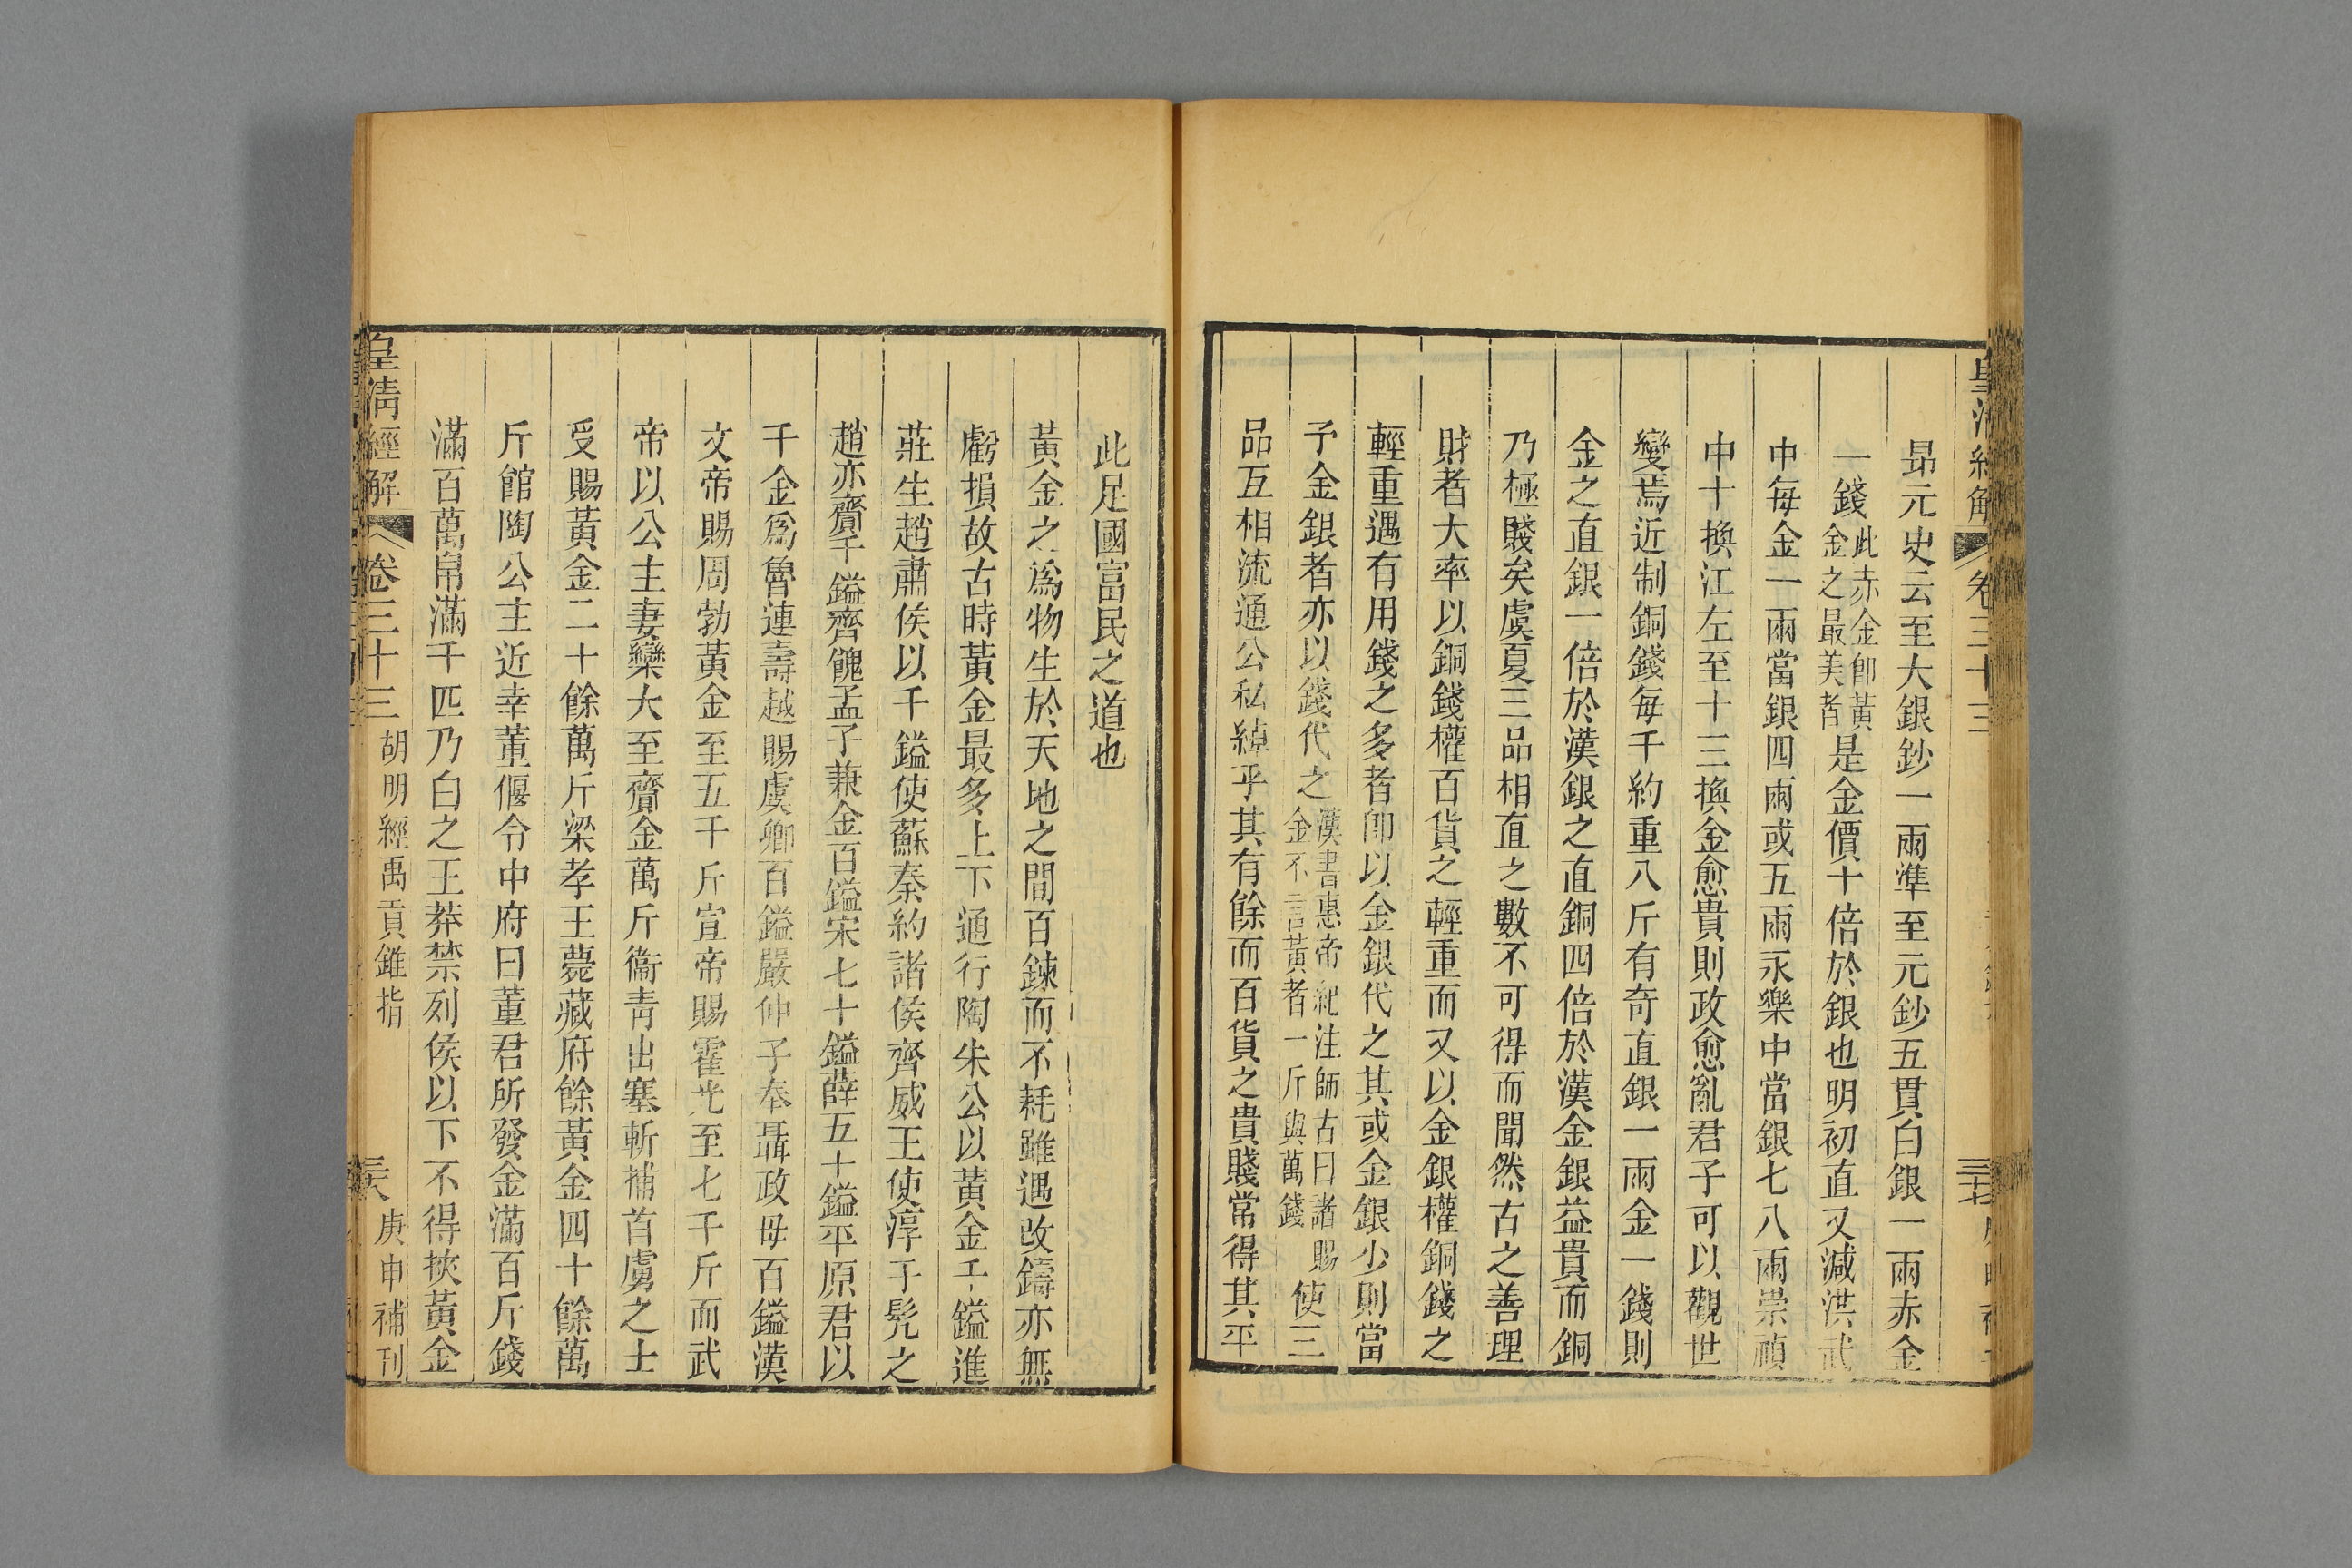 皇清經解 卷三十三 三十七
昂元史云至大銀鈔一兩準至元鈔五貫白銀一兩赤金
一錢此赤金卽黃金之最美者是金價十倍於銀也明初直又減洪武
中每金一兩當銀四兩或五兩永樂中當銀七八兩崇禎
中十換江左至十三換金愈貴則政愈亂君子可以觀世
變焉近制銅錢每千約重八斤有奇直銀一兩金一錢則
金之直銀一倍於漢銀之直銅四倍於漢金銀益貴而銅
乃極賤矣虞夏三品相直之數不可得而聞然古之善理
財者大率以銅錢權百貨之輕重而又以金銀權銅錢之
輕重遇有用錢之多者卽以金銀代之其或金銀少則當
予金銀者亦以錢代之漢書惠帝紀注師古曰諸賜金不言黃者一斤與萬錢使三
品互相流通公私綽乎其有餘而百貨之貴賤常得其平
此足國富民之道也
黃金之爲物生於天地之間百鍊而不耗雖遇改鑄亦無
虧損故古時黃金最多上下通行陶朱公以黃金千鎰進
莊生趙肅侯以千鎰使蘇秦約諸侯齊威王使淳于髡之
趙亦齎千鎰齊餽孟子兼金百鎰宋七十鎰薛五十鎰平原君以
千金爲魯連壽越賜虞卿百鎰嚴仲子奉聶政母百鎰漢
文帝賜周勃黃金至五千斤宣帝賜霍光至七千斤而武
帝以公主妻欒大至齎金萬斤衞靑出塞斬捕首虜之士
受賜黃金二十餘萬斤梁孝王薨藏府餘黃金四十餘萬
斤館陶公主近幸董偃令中府曰董君所發金滿百斤錢
滿百萬帛滿千匹乃白之王莽禁列侯以下不得挾黃金
皇清經解 卷三十三 胡明經禹貢錐指 三十八 庚申補刊